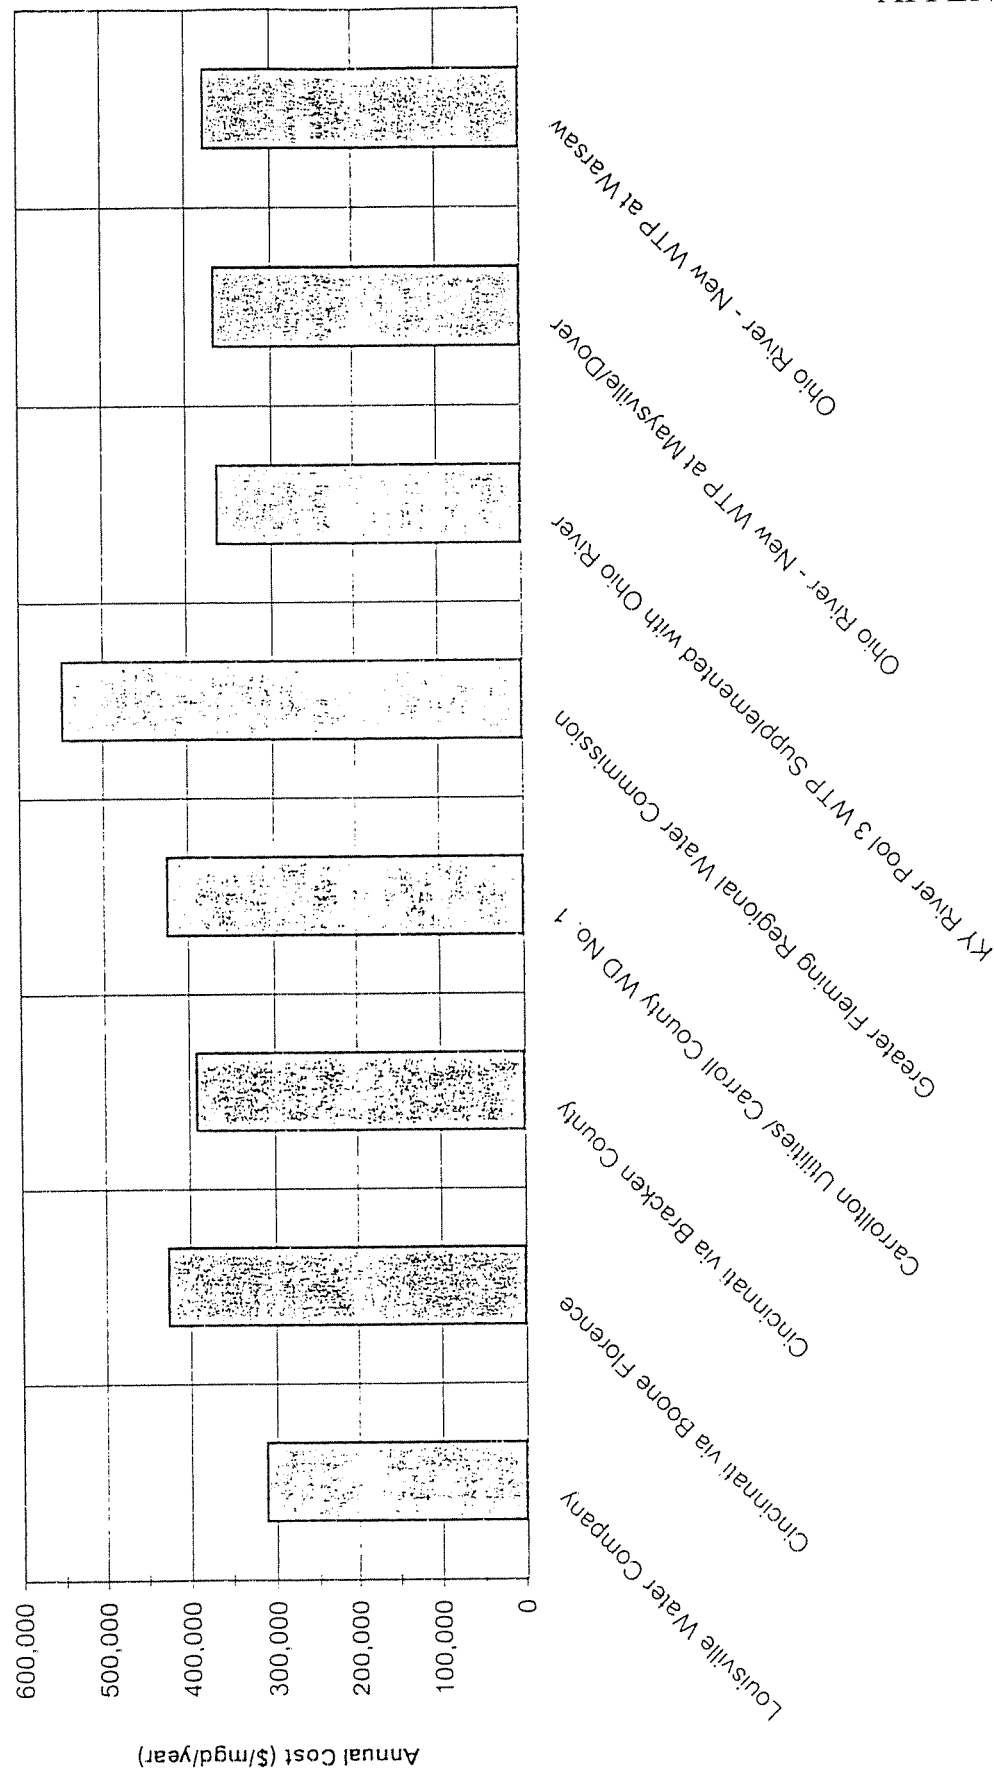 Annual Cost ($/mgd/year)
600,000
500,000
400,000
300,000
200,000
100,000
0
Louisville Water Company
Cincinnati via Boone Florence
Cincinnati via Bracken County
Carrollton Utilities/ Carroll County WD No. 1
Greater Fleming Regional Water Commission
KY River Pool 3 WTP Supplemented with Ohio River
Ohio River - New WTP at Maysville/Dover
Ohio River - New WTP at Warsaw